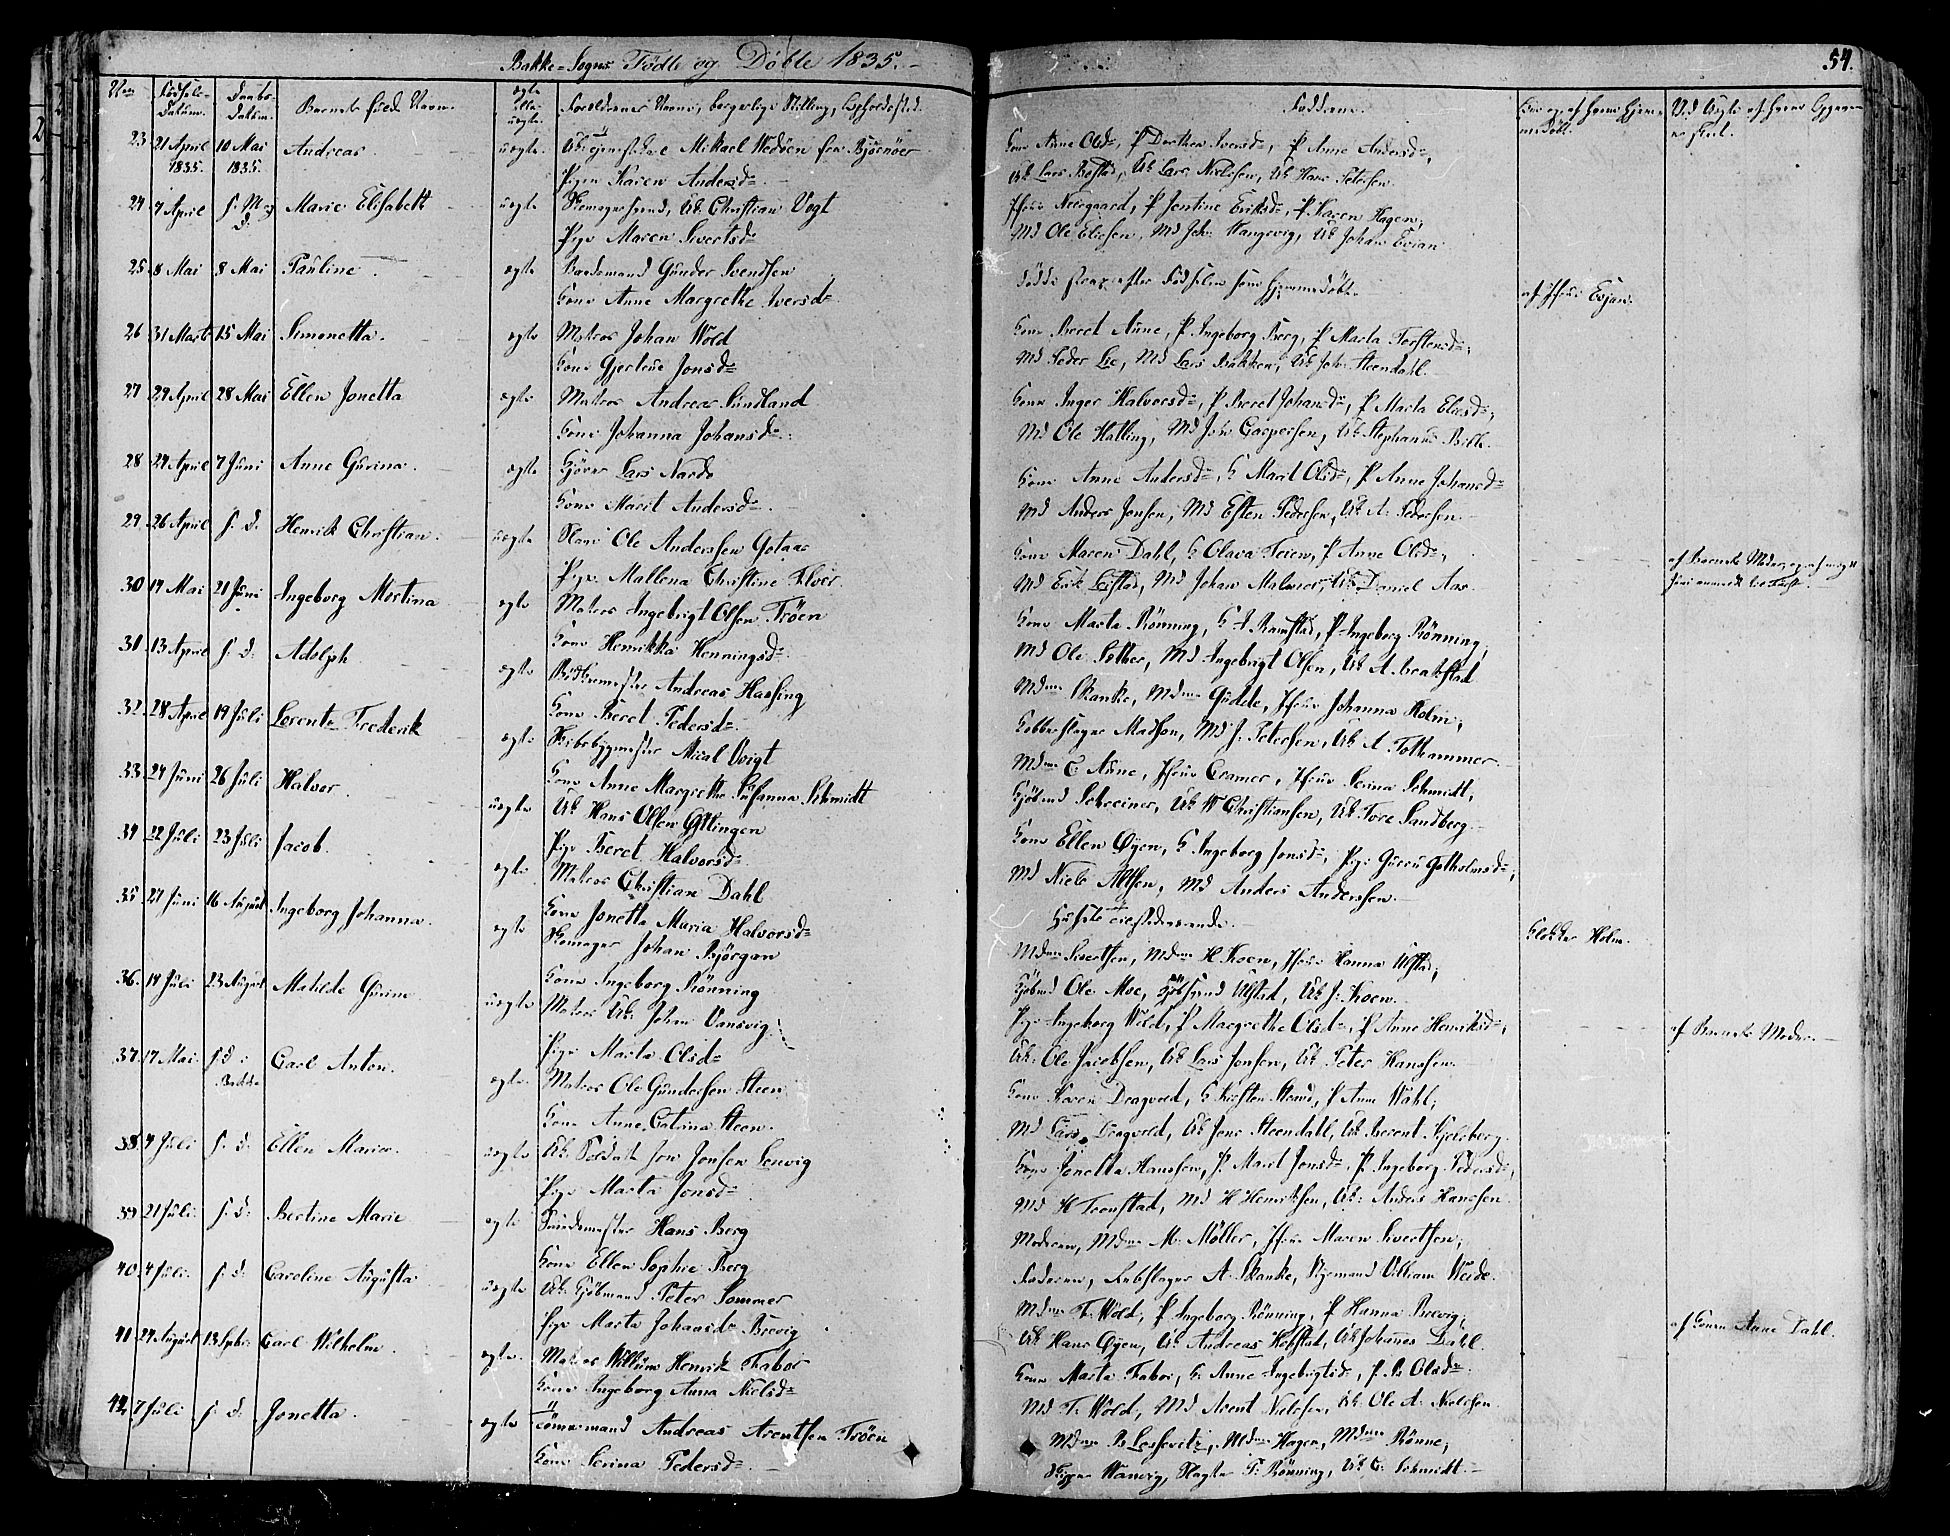 Bakke-Sogns Fødte og Døbte 1835.
54.
Fødsels-Datum. Daabs-Datum. Barnets fulde Navn. ægte eller uægte. Foreldrenes Navne, borgerlige Stilling, Opholdssted.
Faddere.
23 21 April 1835. 10 Mai 1835. Andreas uægte. Mikael Wedøen fra Bjørnøer
Pigen Karen Andersd.
Anne Olsd, P Dorthea Iversd, P Anne Andersd,
Uk Lars Bostad, Uk Lars Nielsen, Uk Hans Petersen.
24 7 April s. D. Marie Elisabeth uægte Skomagersvend, Uk. Christian Vogt
Pige Maren Sivertsd
Neergaard, P Jentine Eriksd, P. Karen Hagen,
Md Ole Eliesen, Md Joh. Wangevig, Uk Johan Evian
25. 8 Mai 8 Mai Pauline ægte Gunder Svendsen
Kone Anne Margrethe Iversd
døde strax efter Fødselen som hjemmedøbt.
af Jfr Evjen.
26 31 Marts 15 Mai Simonetta. ægte Matros Johan Wold
Kone Gjertrue Jonsd
Kone Beret Aune, P. Ingeborg Berg, P Marta Torstensd,
Md Peder Lie, Md Lars Bakken, Uk Joh. Steendahl.
27 29 April 28 Mai Ellen Jonetta ægte Matros Andreas Sundland
Kone Johanna Johansd
Kone Inger Halvorsd, P Beret Johansd, P Marta Eliesd,
Md Ole Halling, Md Joh Caspersen, Uk Stephanus
28 24 April 7 Juni Anne Gurina. ægte Lars Nardo
Kone Marit Andersd.
Kone Anne Andersd, K Marit Olsd, P Anne Johansd
Md Anders Jonsen, Md Esten Pedersen, Uk A. Pedersen.
29. 26 April s. D. Henrik Christian. uægte Ole Anderssen Gotaas
Pige Mallena Christine Floer.
Kone Maren Dahl, K Olava Teien, P Anne Olsd,
Md Erik Lefstad, Md Johan Malmer, Uk Daniel Aas.
af Barnets Moder
30 19 Mai 21 Juni Ingeborg Mortina ægte Matros Ingebrigt Olsen Trøen
Kone Henrikka Henningsd
Kone Marta Rønning, K A Ramstad, P Ingeborg Rønning,
Md Ole Sæther, Md Ingebrigt Olsen, Uk A.
31. 13 April s. D. Adolph ægte Andreas Hassing
Kone Beret Pedersd
Mdme Skanke, Mdme Gudde, Jfr Johanna Holm,
Kobberslager Madsen, Md J. Petersen, Uk A. Folhammer.
32. 28 April 19 Juli Lorentz Frederik ægte Skibsbygmester Mical Voigt
Kone Anne Margrethe Susanna Schmidt
Mdme C. Aune, Jfr Cramer, Jfr Serina Schmidt,
Kjøbmd Schreiner, Uk W Christiansen, Uk Tore Sandberg.
33. 24 Juni 26 Juli Halvor uægte Uk Hans Olsen
Pige Beret Halvorsd.
Kone Ellen Øyen, K Ingeborg Jonsd, Pige Gurru
Md Niels Altsen, Md Anders Anderssen.
34 22 Juli 23 Juli Jacob. ægte Matros Christian Dahl
Kone Jonetta Maria Halvorsd
Klokker Holm.
35 27 Juni 16 August Ingeborg Johanna. ægte Skomager Johan Bjørgan
Kone Ingeborg Rønning
Mdme Sivertsen, Mdme H Koen, Jfr Hanna Ulstad,
Kjøbmd Ole Moe, Ulstad, Uk J. Koen.
36. 14 Juli 23 August Matilde Gurine uægte Matros Uk: Johan Vansvig
Pige Marta Olsd
Pige Ingeborg Wold, P Margrethe Olsd, P Anne Henriksd,
Uk: Ole Jacobsen, Uk Lars Jonsen, Uk Peter Hanssen.
af Barnets Moder.
37. 17 Mai. s: D: Bakke Carl Anton. ægte Matros Ole Gundersen Steen
Kone Anne Catrina Steen.
Kone Karen Dragvold, K Kirsten Strand, P Anne Wahl,
Md Lars Dragvold, Uk Jens Steendahl, Uk Berent Kjelsberg.
38. 4 Juli s. D. Ellen Marie. uægte Uk Soldat Jonsen Lervig
Pige Marta Jonsd
Kone Jonetta Hanssen, P. Marit Jonsd, P. Ingeborg Pedersd,
Md H Tronstad, Md H Henriksen, Uk: Anders Hanssen
39 21 Juli. s. D: Bertine Marie ægte Hans Berg
Kone Ellen Sophie Berg
Moderen, Mdme M. Møller, Jfr Maren Sivertsen,
Faderen, Rebslager A. Skanke, Styrmand William Weide.
40. 4 Juli. s. D: Caroline Augusta uægte Uk. Kjøbmand Peter Sommer
Pige Marta Johansd Brevig
Mdme T. Wold, P Ingeborg Rønning, P Hanna Brevig,
Uk Hans Øyen, Uk Andreas Hofstad, Uk Johannes Dahl.
af Konen Anne Dahl.
41. 24 August 13 Septbr. Carl Wilhelm ægte Matros Willum Henrik Fabor
Kone Ingeborg Anna Nielsd
Kone Marta Fabor, K. Anne Ingebrigtsd, P. A. Olsd
Md T. Wold, Md Arent Nielsen, Uk Ole A. Nielsen
42. 7 Juli s. D. Jonetta. ægte Tømmermand Andreas Arentsen Trøen
Kone Serina Pedersd.
Mdme B Mdme Hagen, Mdme Rønne,
Skipper Wanvig, Slagter T. Rønning, Uk C. Schmidt.